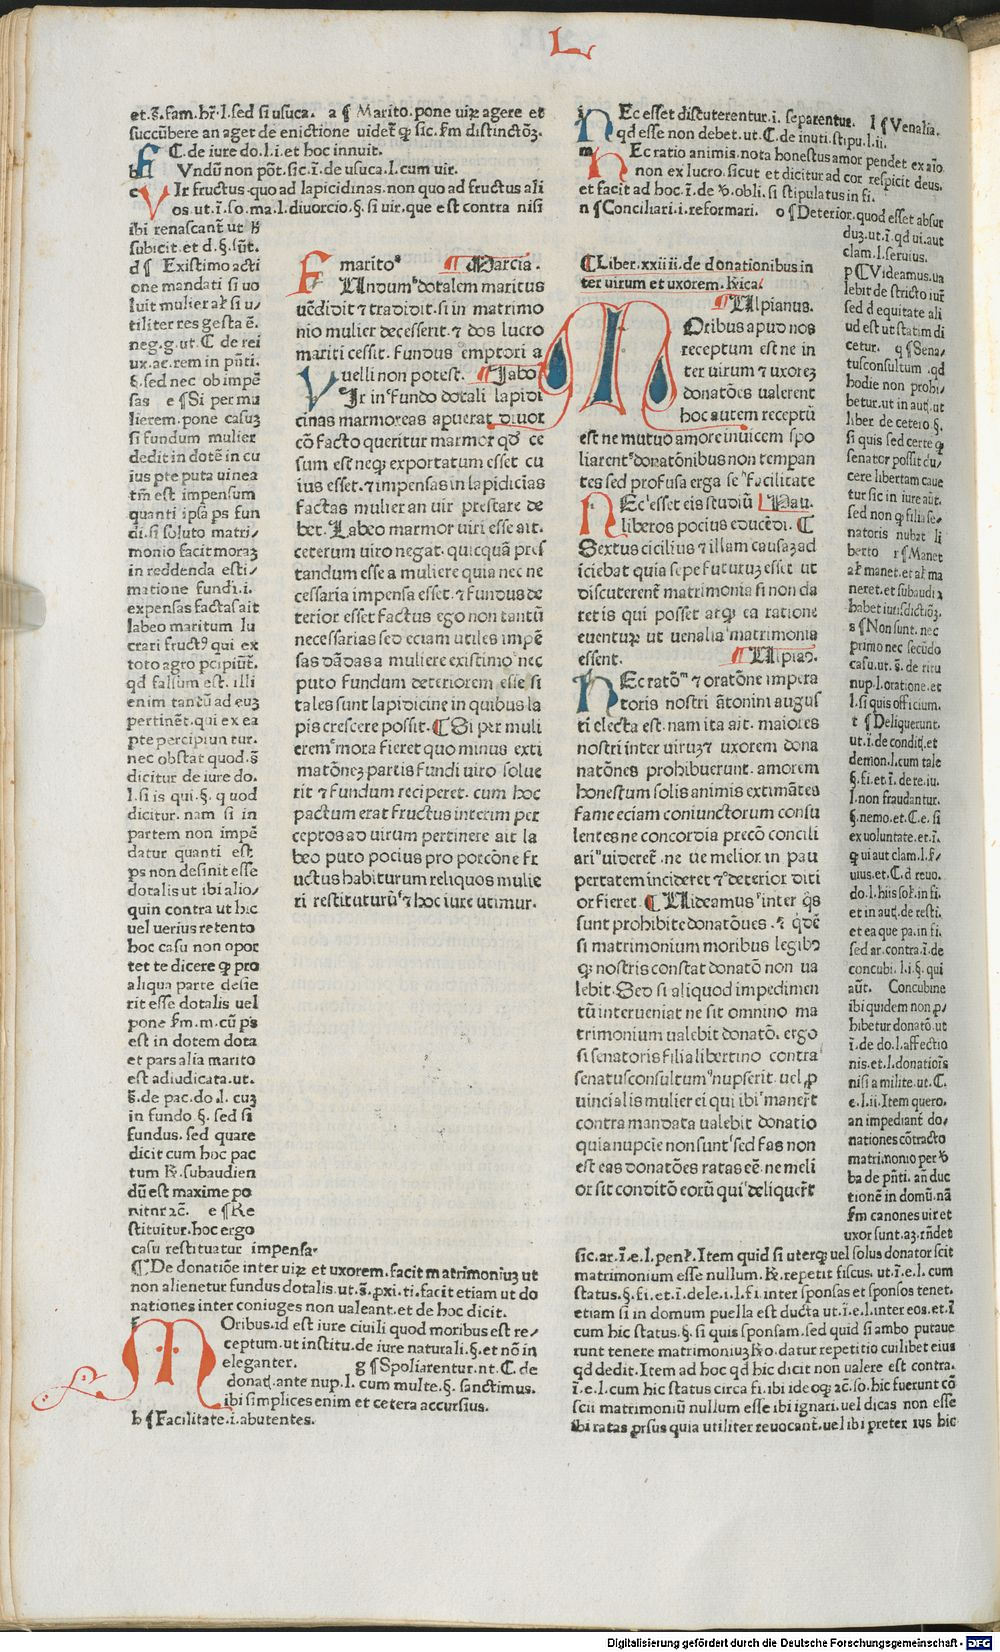 L
et.§.fam.hr̄.l.sed si usuca. a ¶ Marito. pone uiꝝ agere et
succūbere an aget de euictione uidet̄ ꝙ sic. s̄m distinctōꝫ.
C. de iure do.l.i.et hoc innuit.
b Vndū non pōt. sic.ī.de usuca.l.cum uir.
c Ir fructus. quo ad lapicidinas. non quo ad fructus ali
os. ut.ī.so.ma.l.diuorcio.§.si uir. que est contra nisi
ibi renascant̄ ut
subicit. et d.§.sūt.
d ¶ Existimo acti
one mandati si uo
luit mulier al̄r si u/
tiliter res gesta ē.
neg.g.ut.C de rei
ux.ac.rem in pn̄ti.
§.sed nec ob impē
sas e ¶ Si per mu
lierem. pone casuꝫ
si fundum mulier
dedit in dotē in cu
ius pte puta uinea
tm̄ est impensum
quanti ipsa ps fun
di. si soluto matri/
monio facit moraꝫ
in reddenda esti/
matione fundi.i.
expensas factas ait
labeo maritum lu
crari fructꝰ qui ex
toto agro pcipiūt̄.
qd falsum est. illi
enim tantū ad euꝫ
pertinēt. qui ex ea
pte percipiun tur.
nec obstat quod.§
dicitur de iure do.
l.si is qui.§.quod
dicitur. nam si in
partem non impē
datur quanti est
ps non desinit esse
dotalis ut ibi alio/
quin contra ut hic
uel uerius retento
hoc casu non opor
tet te dicere ꝙ pro
aliqua parte desie
rit esse dotalis uel
pone s̄m.m.cū ps
est in dotem data
et pars alia marito
est adiudicata. ut.
§.de pac.do.l.cuꝫ
in fundo.§.sed si
fundus. sed quare
dicit cum hoc pac
tum ꝶ. subaudien
dū est maxime po
nitur ⁊c̄. e ¶ Re
stituitur. hoc ergo
casu restituatur impensa.
¶ De donatiōe inter uiꝝ et uxorem. facit matrimoniuꝫ ut
non alienetur fundus dotalis. ut.§.ꝓxi.ti.facit etiam ut do
nationes inter coniuges non ualeant. et de hoc dicit.
f Moribus. id est iure ciuili quod moribus est re/
ceptum. ut institu.de iure naturali.§.et nō in
eleganter. g ¶ Spoliarentur. nt.C.de
donatꝭ.ante nup.l.cum multe.§.sanctimus.
ibi simplices enim et cetera accursius.
h ¶ Facilitate.i.abutentes.
F marito ¶ Marcia.
Undum dotalem maritus
uēdidit ⁊ tradidit. si in matrimo
nio mulier decesserit. ⁊ dos lucro
mariti cessit. fundus emptori a
uelli non potest. ¶ Jabo.
VIr in fundo dotali lapidi
cinas marmoreas apuerat. diuor
cō facto queritur marmor qd̓ ce
sum est neqꝫ exportatum esset cu
ius esset. ⁊ impensas in lapidicias
factas mulier an uir prestare de
bet. Labeo marmor uiri esse ait.
ceterum uiro negat. quicquā pres
tandum esse a muliere quia nec ne
cessaria impensa esset. ⁊ fundus de
terior esset factus ego non tantū
necessarias sed eciam utiles impē
sas dādas a muliere existimo nec
puto fundum deteriorem esse si
tales sunt lapidicine in quibus la
pis crescere possit. ¶ Si per muli
erem mora fieret quo minus exti
matōneꝫ partis fundi uiro solue
rit ⁊ fundum reciperet. cum hoc
pactum erat fructus interim per
ceptos ad uirum pertinere ait la
beo puto pocius pro porcōne fr
uctus habiturum reliquos mulie
ri restituturū ⁊ hoc iure utimur.
¶ Liber.xxiiii.de donationibus in
ter uirum et uxorem. ꝶica
¶ Ulpianus.
MOribus apud nos
receptum est ne in
ter uirum ⁊ uxoreꝫ
donatōes ualerent
hoc autem receptū
est ne mutuo amore inuicem spo
liarent donatōnibus non temperan
tes sed profusa erga se facilitate
NEc esset eis studiū ¶ Pau.
liberos pocius educēdi. ¶
Sextus cicilius ⁊ illam causaꝫ ad
iciebat quia sepe futuruꝫ esset ut
discuterent matrimonia si non da
ret is qui posset atqꝫ ea ratione
euenturꝫ ut uenalia matrimonia
essent. ¶ Ulpiaꝰ.
HEc ratō ⁊ oratōne impera
toris nostri ātonini augus
ti electa est. nam ita ait. maiores
nostri inter uiruꝫ ⁊ uxorem dona
natōnes prohibuerunt. amorem
honestum solis animis extimātes
fame eciam coniunctorum consu
lentes ne concordia precō concili
ari uideret̄. ne ue melior in pau
pertatem incideret ⁊ deterior diti
or fieret. ¶ Uideamus inter q̄s
sunt prohibite donatōues. ⁊ qdē
si matrimonium moribus legibꝫ
qꝫ nostris constat donatō non ua
lebit. Sed si aliquod impedimen
tū interueniat ne sit omnino ma
trimonium ualebit donatō. ergo
si senatoris filia libertino contra
senatusconsultum nupserit. uel ꝓ
uincialis mulier ei qui ibi maner̄t
contra mandata ualebit donatio
quia nupcie non sunt sed fas non
est eas donatōes ratas eē. ne meli
or sit conditō eorū qui deliquer̄t
i NEc esset discuterentur.i. separentur. l ¶ Venalia.
qd esse non debet. ut.C.de inuti.stipu.l.ii.
m HEc ratio animis. nota honestus amor pendet ex aīo
non ex lucro. sicut et dicitur ad cor respicit deus.
et facit ad hoc.ī.de ꝟ.obli.si stipulatus in fi.
n ¶ Conciliari.i.reformari. o ¶ Deterior. quod esset absur
duꝫ. ut.ī.qd ui.aut
clam.l.seruius.
p ¶ Videamus. ua
lebit de stricto iur̄
sed d equitate ali
ud est ut statim di
cetur. q ¶ Sena/
tusconsultum .qd
hodie non prohi/
betur. ut in autꝭ.ut
liber de cetero §.
si quis sed certe ꝙ
senator possit du/
cere libertam caue
tur sic in iure aūt.
sed non ꝙ filia se/
natoris nubat li
berto r ¶ Manet
al̄r manet. et al̄r ma
neret. et subaudi
habet iurisdictōꝫ.
s ¶ Non sunt. nec
primo nec secūdo
casu. ut.§.de ritu
nup.l.oratione. et
l.si quis officium.
t ¶ Deliquerunt.
ut.ī.de conditꝭ.et
demon.l.cum tale
§.fi.et.ī.de re.iu.
l.non fraudantur.
§.nemo.et.C.e. si
ex uoluntate. et.ī.
ꝙ ui aut clam.l.f/
uius. et.C.d reuo.
do.l.hiis sol̄.in fi.
et in autꝭ.de resti.
et ea que pa. in fi.
sed ar.contra.ī.de
concubi.l.i.§.qui
aūt. Concubine
ibi quidem non ꝓ/
hibetur donatō. ut
ī.de do.l.affectio
nis. et.l.donatiōis
nisi a milite. ut.C.
e.l.ii.Item quero.
an impediant do/
nationes cōtracto
matrimonio per ꝟ
ba de pn̄ti. an̄ duc
tionē in domū. nā
s̄m canones uir et
uxor sunt. aꝫ. rn̄det
sic.ar.ī.e.l.penl̄. Item quid si uterqꝫ uel solus donator scit
matrimonium esse nullum. ꝶ. repetit fiscus. ut.ī.e.l.cum
status.§.fi.et.ī.de le.i.l.fi. inter sponsas et sponsos tenet.
etiam si in domum puella est ducta ut.ī.e.l.inter eos. et.ī
cum hic status.§.si quis sponsam. sed quid si ambo putaue
runt tenere matrimoniuꝫ ꝶo. datur repetitio cuilibet eius
qd dedit. Item ad hoc qd hic dicit non ualere est contra.
ī.e.l.cum hic status circa fi. ibi ideoqꝫ ⁊c̄. so. hic fuerunt cō
scii matrimoniū nullum esse ibi ignari. uel dicas non esse
ibi ratas ꝓrsus quia utiliter reuocant̄. uel ibi preter ius hic
Digitalisierung gefördert durch die Deutsche Forschungsgemeinschaft - DFG